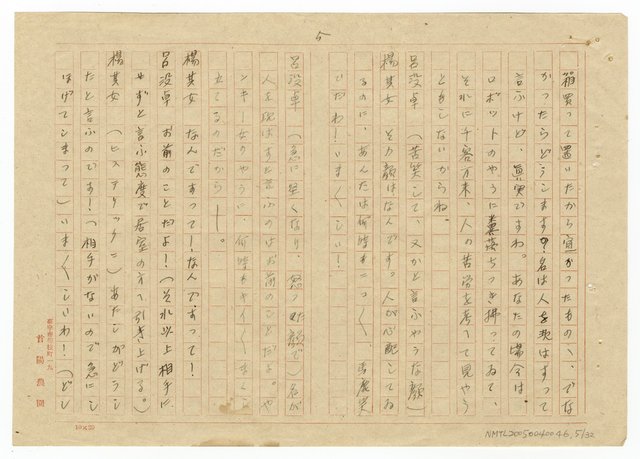 5
箱買って置いたから宜かったものゝ、でな
かったらどうします？名は人を現はすって
言ふけど、真実ですわ。あなたの場合は
ロボットのやうに糞落ちつき拂ってゐて、
それに千客万来、人の苦労を考へて見やう
ともしないからね。
呂没卓 （苦笑して、又かと言ふやうな顔）
楊其女 その顔はなんです。人が心配してゐ
るのに、あんたは何時もこつ〱、馬鹿見
たいだわ！いま〱しい！
呂没卓 （急に堅くなり、怒った顔で）名が
人を現はすと言ふのはお前のことだよ。や
ンキー女のやうに、何時もヤイ〱
立てるのだから――。
楊其女 なんですって！なんですって！
呂没卓 お前のことだよ！（それ以上相手に
せずと言ふ態度で居室の方へ引き上げる。）
楊其女 （ヒステリックに）あたしがどうし
たと言ふのです！（相手がないので急にし
ほげてしまって）いま〱しいわ！（どし
首陽農園
10×20
NMTL20050040046, 5/32